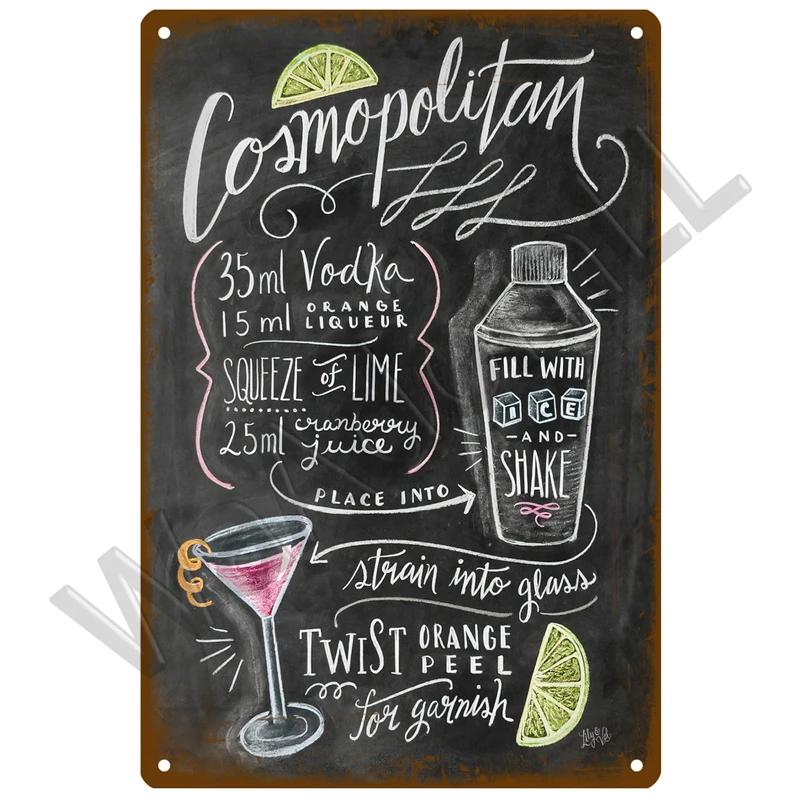 Cosmopolitan
35ml Vodka
15 ml ORANGE
LIQUEUR
SQUEEZE of LIME
25ml cranberry
juice
PLACE INTO
FILL WITH
ICE
-AND-
SHAKE
strain into glass
TWIST ORANGE
PEEL
for garnish
Lily & Val